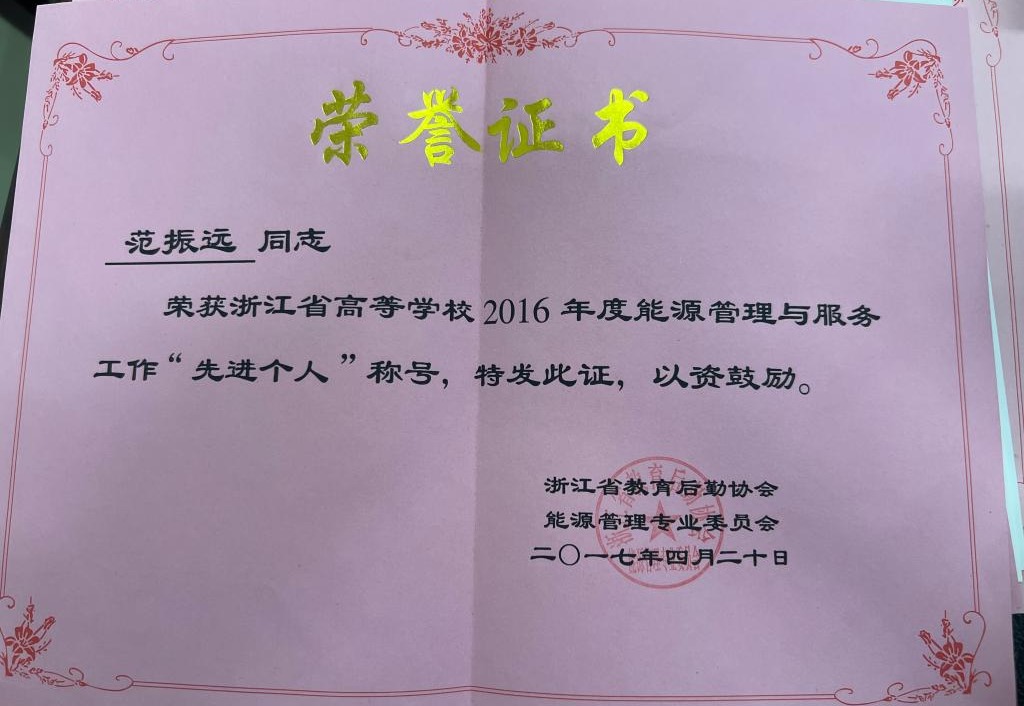 荣誉证书
范振远 同志
荣获浙江省高等学校2016年度能源管理与服务
工作“先进个人”称号，特发此证，以资鼓励。
浙江省教育后勤协会
能源管理专业委员会
二〇一七年四月二十日